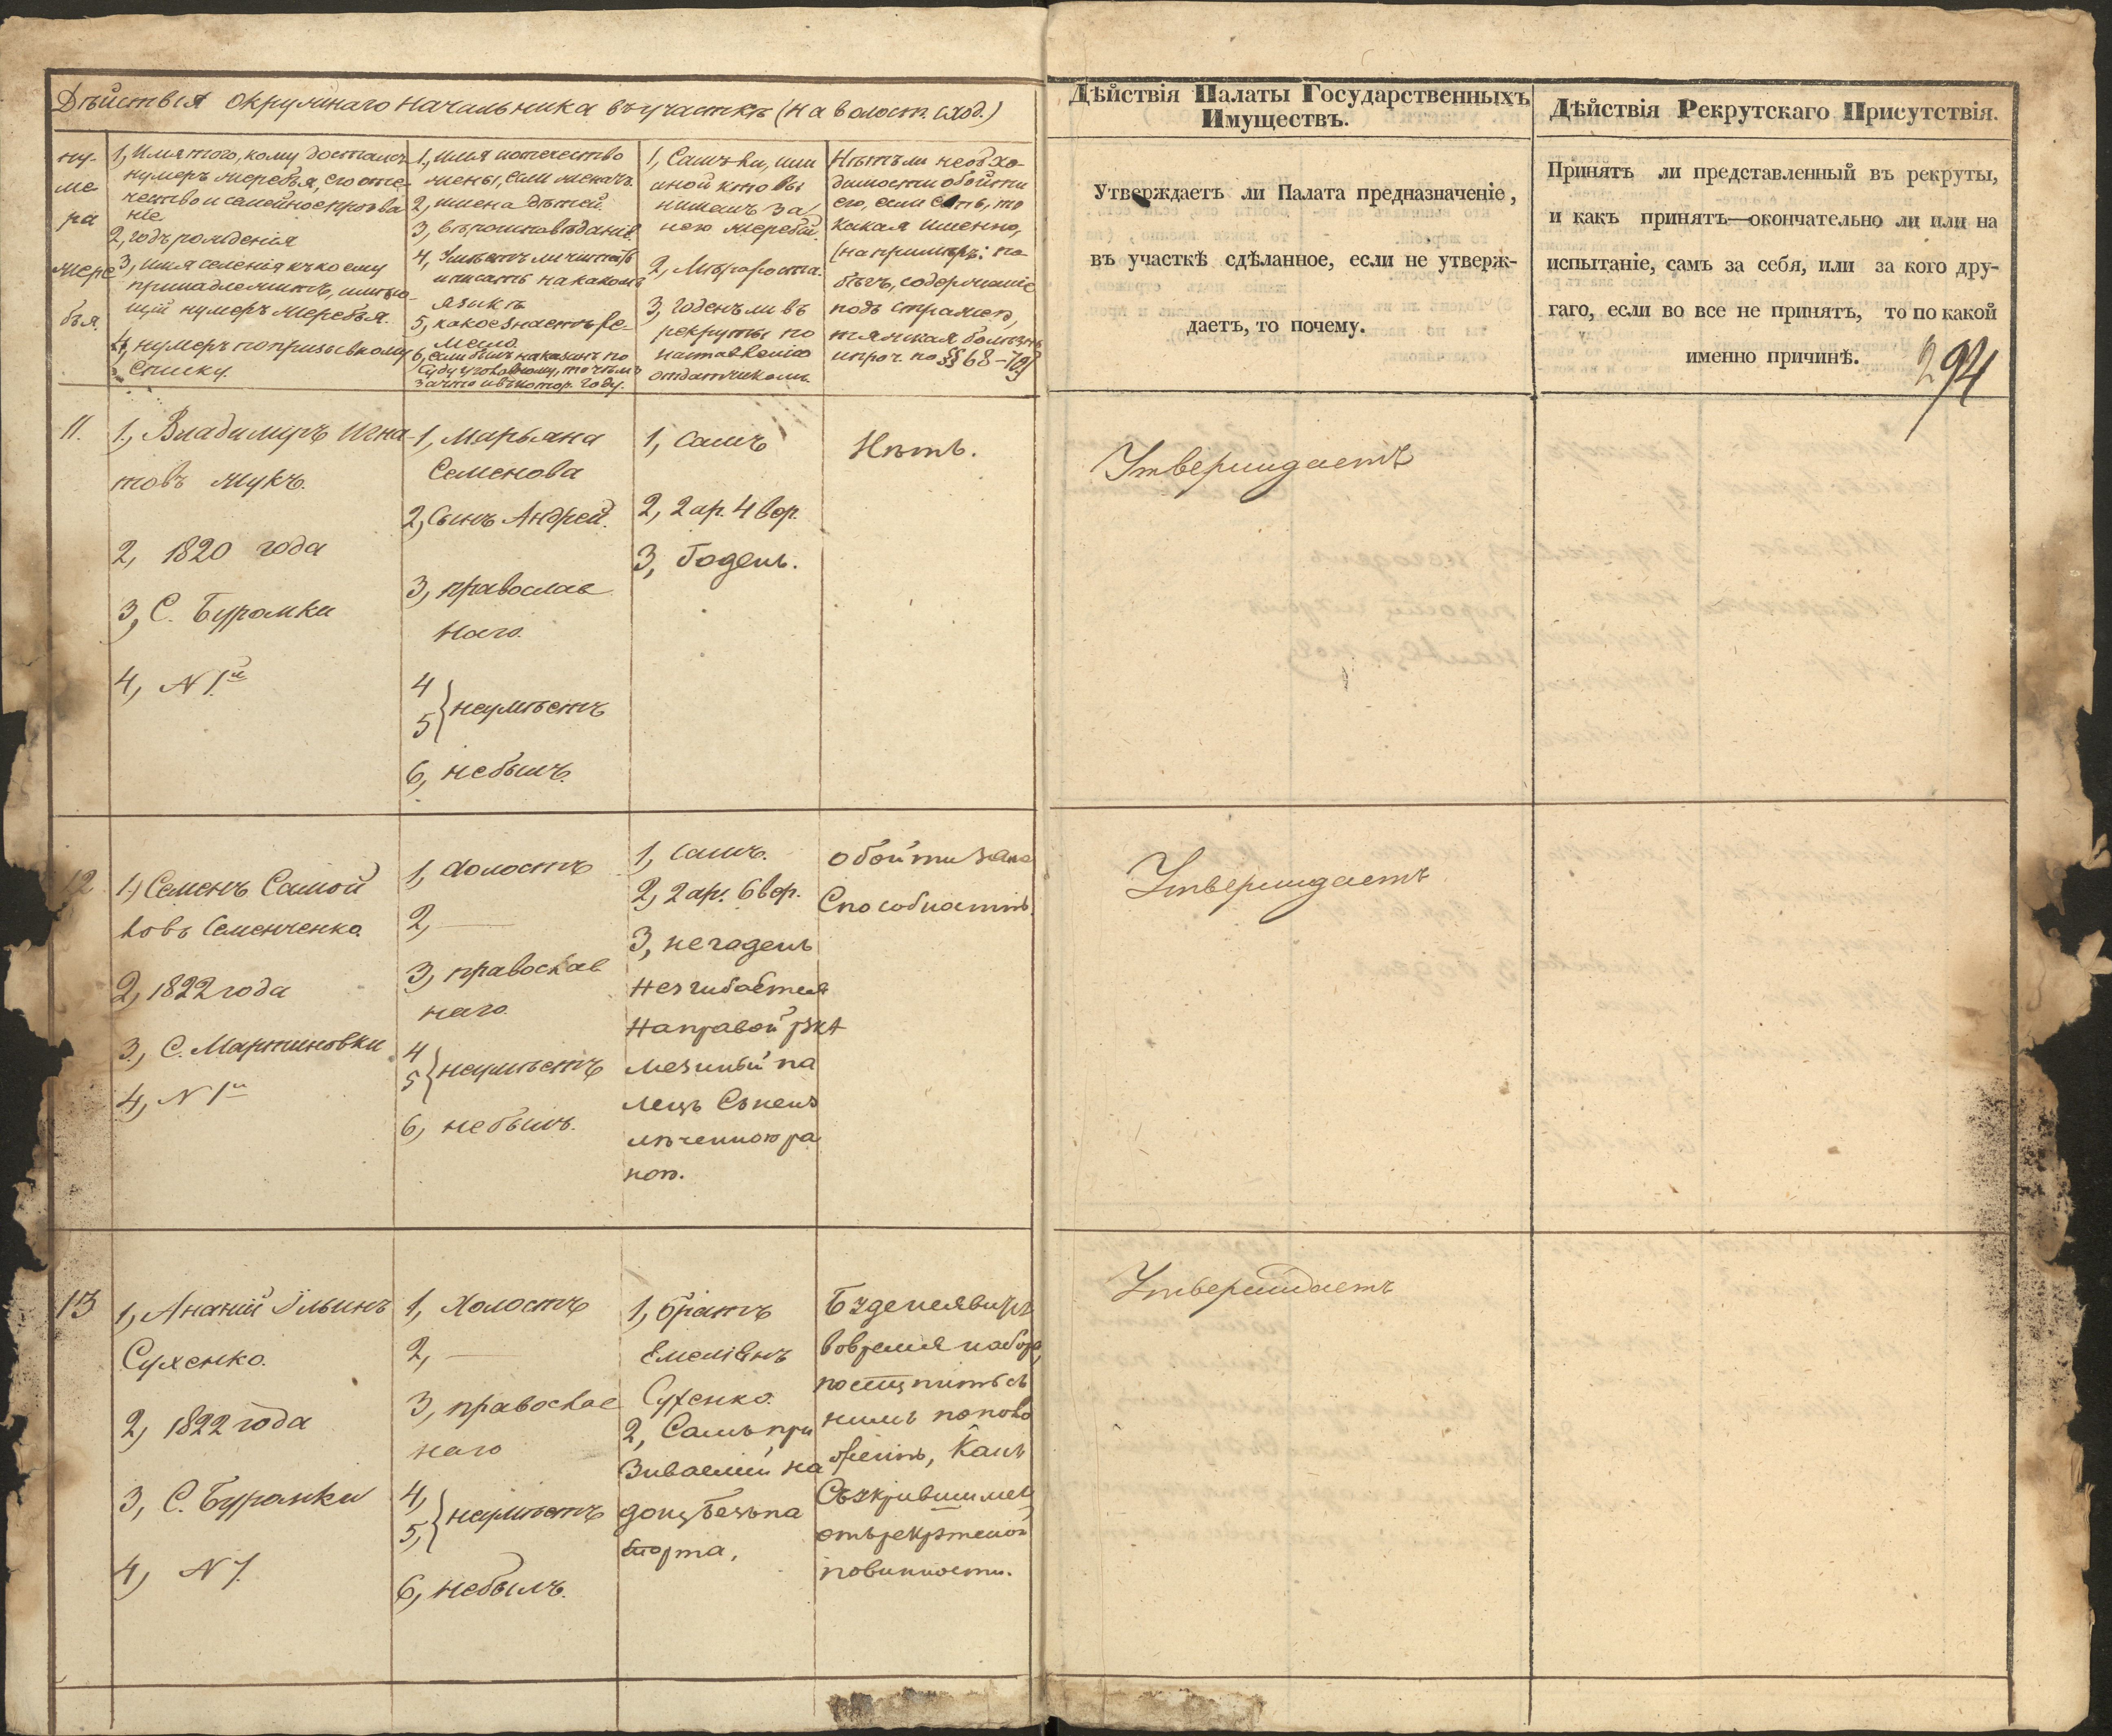 Дѣйствія окружнаго начальника въ участкѣ (на волост. сход.)
ну-
ме
ра
жере
бья.
1, Имя того, кому достался
нумеръ жеребья, его оте-
чество и семейное прозва
ніе
2, годъ рожденія
3, имя селенія къ коему
принадлежитъ, имѣю-
щій нумеръ жеребья.
4, нумеръ по призывному
списку.
1, имя и отечество
жены, если женатъ.
2, имена дѣтей.
3, вѣроисповѣданіе.
4, Умѣетъ ли читать
и писать на какомъ
языкѣ
5, какое знаетъ ре-
месло.
6, если былъ наказанъ по
суду уголовному, то чѣмъ
за что и въ котор. году.
1, Самъ ли, или
иной кто вы
нималъ за
него жеребій.
2, Мѣра роста.
3, Годенъ ли въ
рекруты по
наставленію
отдатчикамъ.
Нѣтъ ли необхо-
димости обойти
его, если есть, то
какая именно,
(напримѣръ: по-
бѣгъ, содержаніе
подъ стражею,
тяжкая болѣзнь
и проч. по §§ 68-
11.
1, Владимиръ Игна-
товъ Жукъ.
2, 1820 года
3, С. Буромки
4, N 1.й
1, Марьяна
Семенова
2, Сынъ Андрей.
3, православ
наго.
4
5 } неумѣетъ
6, небылъ.
1, Самъ
2, 2 ар. 4 вер.
3, Годенъ.
Нѣтъ.
12
1, Семенъ Самой
ловъ Семенченко.
2, 1822 года
3, С. Мартиновки
4, N 1й
1, Холостъ
2, —
3, православ
наго.
4
5 } неумѣетъ
6, небылъ.
1, Самъ.
2, 2 ар. 6 вер.
3, негоденъ
незгибается
направой рукѣ
мезиный па
лецъ
ра
ною.
обойти за не
способностію.
13
1, Ананий Ильинъ
Сухенко.
2, 1822 года
3, С. Буромки
4, N 1.
1, Холостъ
2, —
3, православ
наго
4,
5, } неумѣетъ
6, небылъ.
1, братъ
Емеліянъ
Сухенко.
2, Самъ про
живаетъ на
дону безъ па
шпорта.
Буде неявится
вовремя набора,
поступить съ
нимъ по
какъ
съ укрившимся
отъ рекрутской
повинности.
Дѣйствія Палаты Государственныхъ
Имуществъ.
Утверждаетъ ли Палата предназначеніе,
въ участкѣ сдѣланное, если не утверж-
даетъ, то почему.
Утверждаетъ
Утверждаетъ
Утверждаетъ
Дѣйствія Рекрутскаго Присутствія.
Принятъ ли представленный въ рекруты,
и какъ принятъ—окончательно ли или на
испытаніе, самъ за себя, или за кого дру-
гаго, если во все не принятъ, то по какой
именно причинѣ.
294